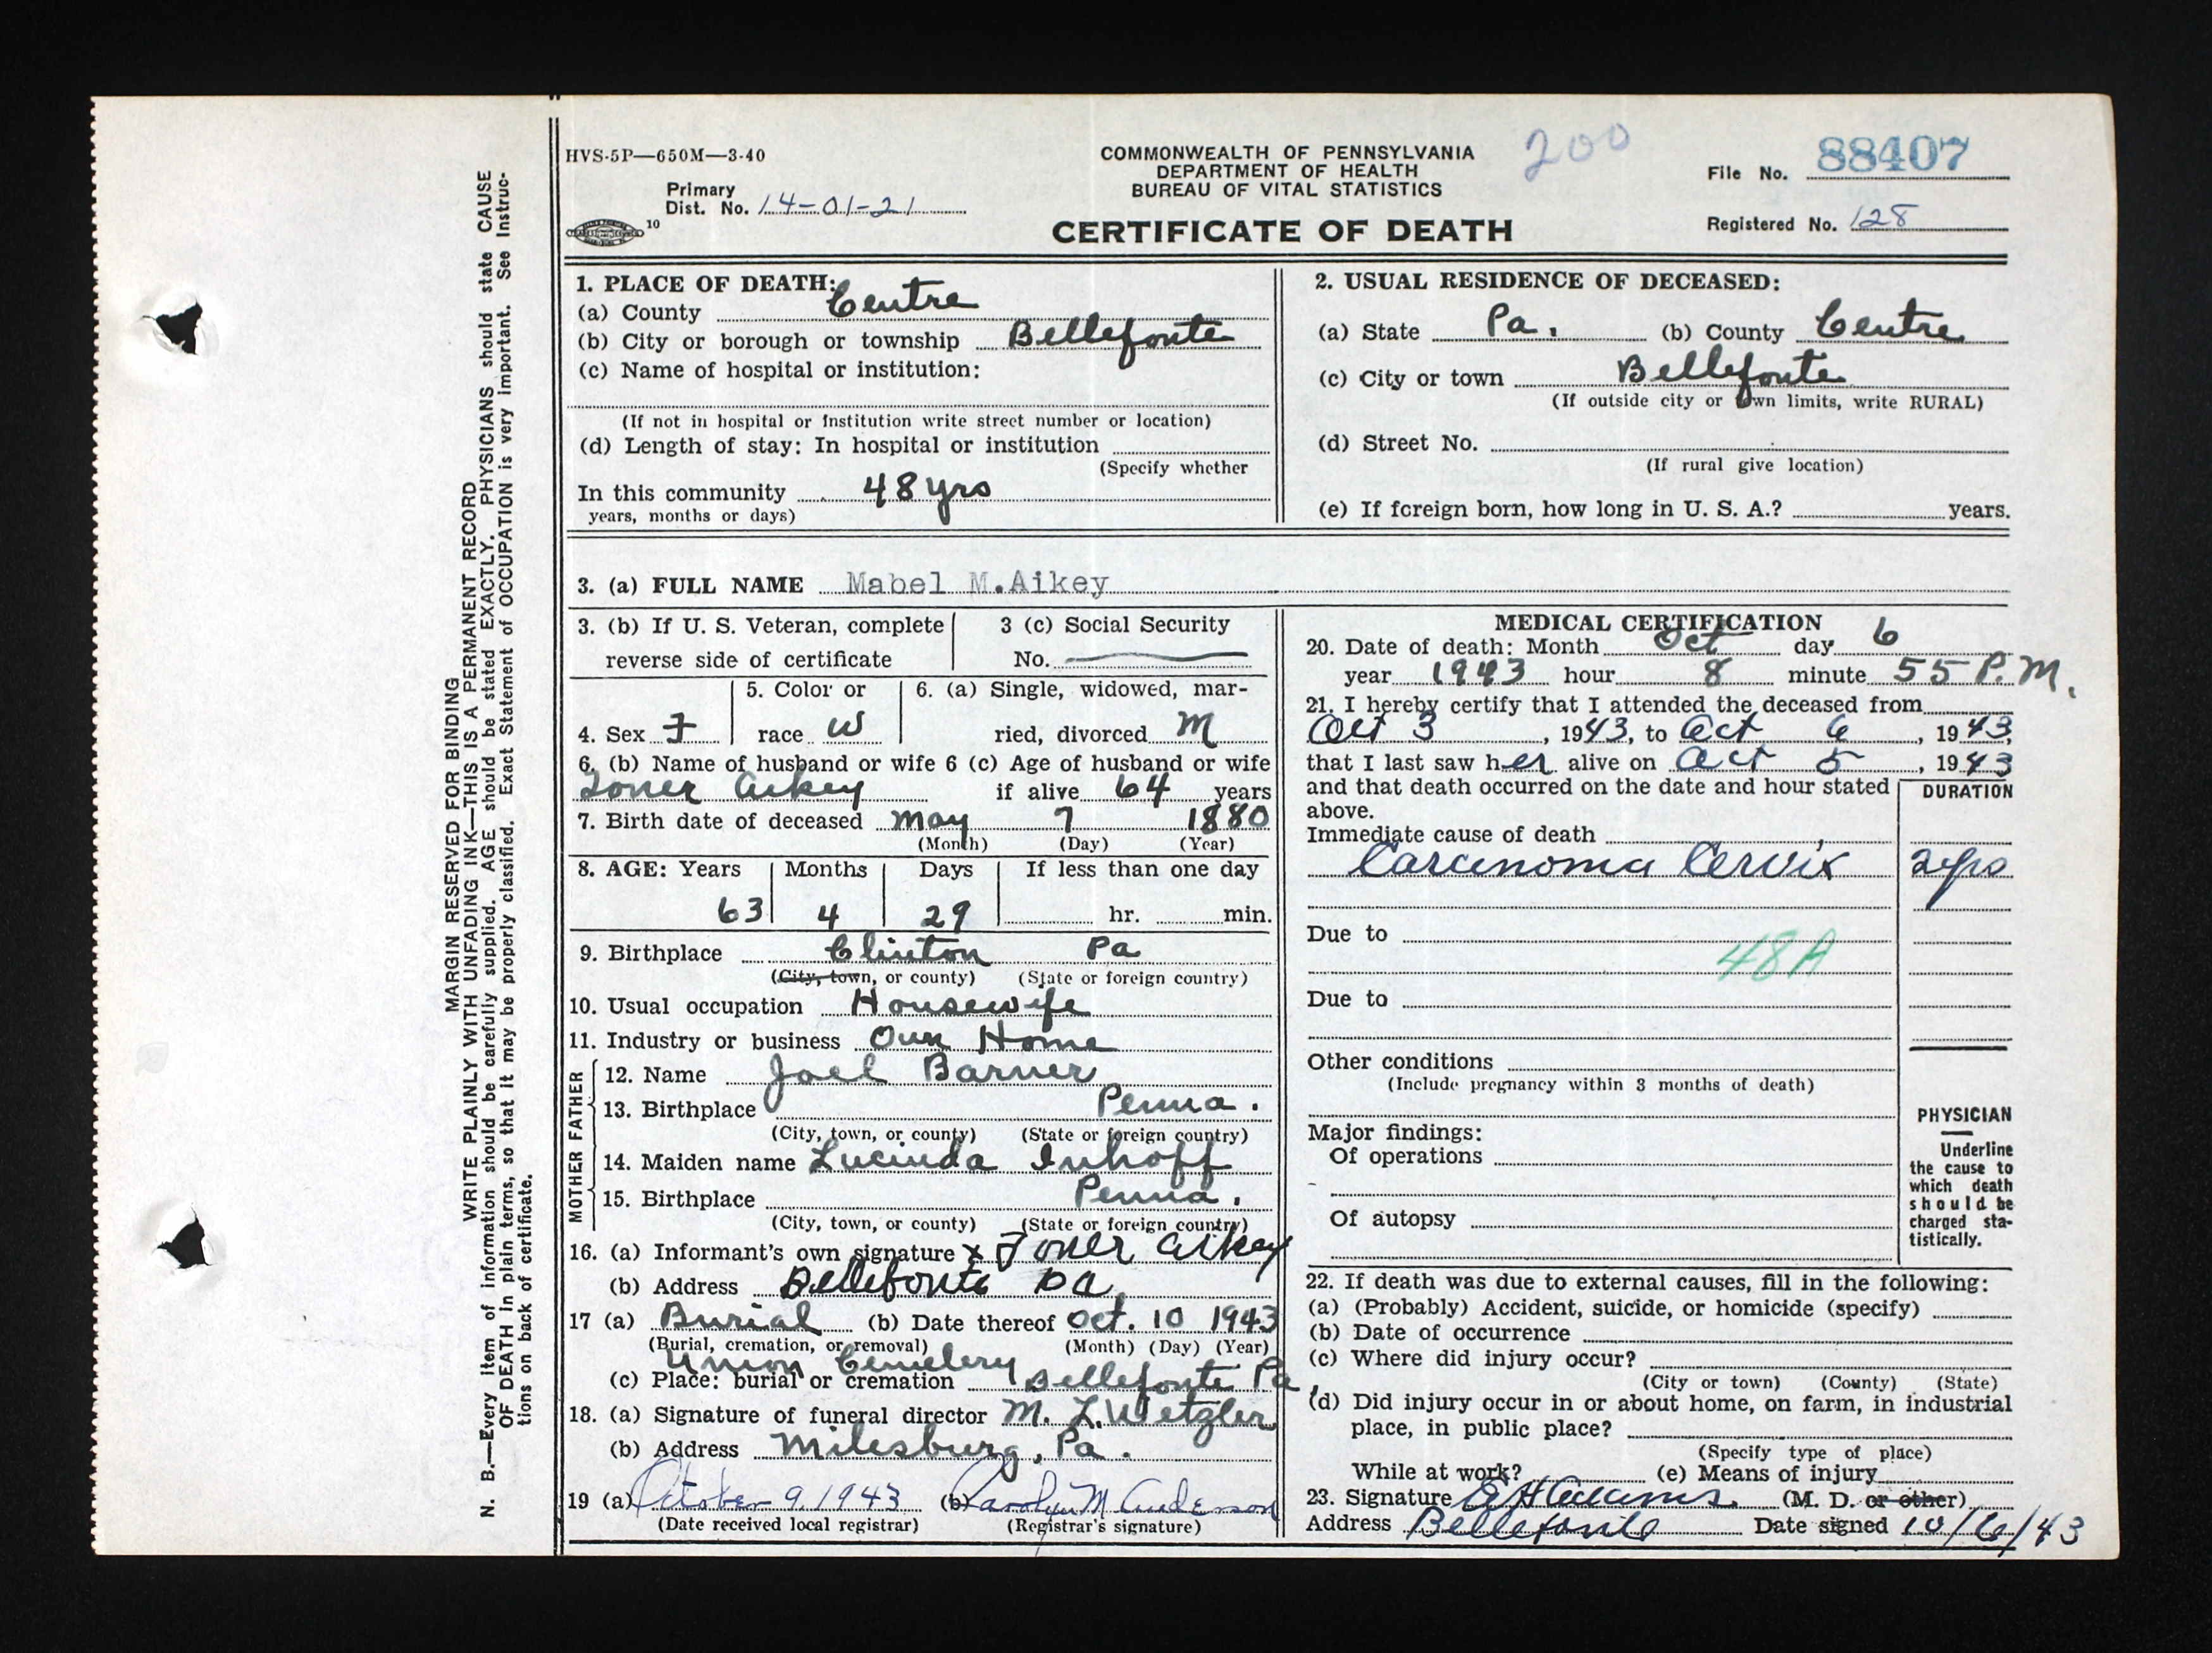 HVS-5P—650M—3-40
COMMONWEALTH OF PENNSYLVANIA
DEPARTMENT OF HEALTH
BUREAU OF VITAL STATISTICS
CERTIFICATE OF DEATH
200
File No. 88407
Registered No. 128
Primary
Dist. No. 14-01-21
10
1. PLACE OF DEATH:
(a) County Centre
(b) City or borough or township Bellefonte
(c) Name of hospital or institution:
(If not in hospital or institution write street number or location)
(d) Length of stay: In hospital or institution
(Specify whether
In this community 48 yrs
years, months or days)
2. USUAL RESIDENCE OF DECEASED:
(a) State Pa. (b) County Centre
(c) City or town Bellefonte
(If outside city or town limits, write RURAL)
(d) Street No.
(If rural give location)
(e) If foreign born, how long in U. S. A.? years.
3. (a) FULL NAME Mabel M. Aikey
3. (b) If U. S. Veteran, complete
reverse side of certificate
3 (c) Social Security
No.
4. Sex F
5. Color or
race W
6. (a) Single, widowed, mar-
ried, divorced M
6. (b) Name of husband or wife 6 (c) Age of husband or wife
Toner Aikey if alive 64 years
7. Birth date of deceased May 7 1880
(Month) (Day) (Year)
8. AGE: Years Months Days If less than one day
63 4 29 hr. min.
9. Birthplace Clinton Pa
(City, town, or county) (State or foreign country)
10. Usual occupation Housewife
11. Industry or business Own Home
FATHER
12. Name Joel Barner
13. Birthplace Penna.
(City, town, or county) (State or foreign country)
MOTHER
14. Maiden name Lucinda Inhoff
15. Birthplace Penna.
(City, town, or county) (State or foreign country)
16. (a) Informant's own signature x Toner Aikey
(b) Address Bellefonte Pa
17 (a) Burial (b) Date thereof Oct. 10 1943
(Burial, cremation, or removal) (Month) (Day) (Year)
Union Cemetery
(c) Place: burial or cremation Bellefonte Pa.
18. (a) Signature of funeral director M. L. Wetzler
(b) Address Milesburg, Pa.
19 (a) October 9, 1943 (b) Carolyn M Anderson
(Date received local registrar) (Registrar's signature)
MEDICAL CERTIFICATION
20. Date of death: Month Oct day 6
year 1943 hour 8 minute 55 P.M.
21. I hereby certify that I attended the deceased from
Oct 3, 1943, to Oct 6, 1943,
that I last saw her alive on Oct 5, 1943
and that death occurred on the date and hour stated
above.
DURATION
Immediate cause of death
Carcinoma Cervix 2 yrs
Due to
48A
Due to
Other conditions
(Include pregnancy within 3 months of death)
Major findings:
Of operations
Of autopsy
PHYSICIAN
Underline
the cause to
which death
should be
charged sta-
tistically.
22. If death was due to external causes, fill in the following:
(a) (Probably) Accident, suicide, or homicide (specify)
(b) Date of occurrence
(c) Where did injury occur?
(City or town) (County) (State)
(d) Did injury occur in or about home, on farm, in industrial
place, in public place?
(Specify type of place)
While at work? (e) Means of injury
23. Signature E H Adams (M. D. or other)
Address Bellefonte Date signed 10/6/43
MARGIN RESERVED FOR BINDING
WRITE PLAINLY WITH UNFADING INK—THIS IS A PERMANENT RECORD
N. B.—Every item of information should be carefully supplied. AGE should be stated EXACTLY. PHYSICIANS should state CAUSE
OF DEATH in plain terms, so that it may be properly classified. Exact Statement of OCCUPATION is very important. See Instruc-
tions on back of certificate.